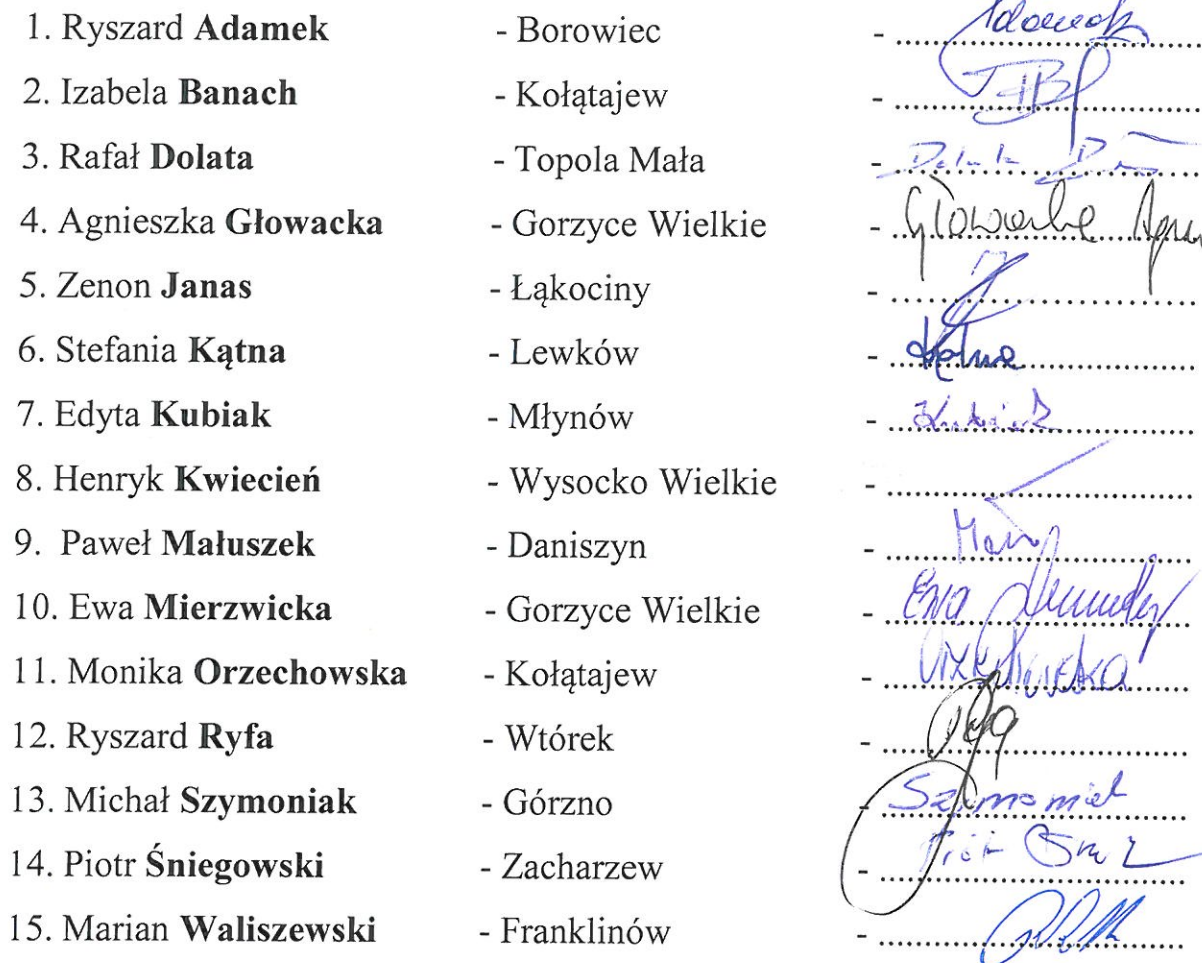 1. Ryszard Adamek - Borowiec - Adamek
2. Izabela Banach - Kołątajew -
3. Rafał Dolata - Topola Mała - Dolata
4. Agnieszka Głowacka - Gorzyce Wielkie - Głowacka
5. Zenon Janas - Łąkociny -
6. Stefania Kątna - Lewków - Kątna
7. Edyta Kubiak - Młynów - Kubiak
8. Henryk Kwiecień - Wysocko Wielkie -
9. Paweł Małuszek - Daniszyn -
10. Ewa Mierzwicka - Gorzyce Wielkie - Ewa
11. Monika Orzechowska - Kołątajew - Orzechowska
12. Ryszard Ryfa - Wtórek -
13. Michał Szymoniak - Górzno - Szymoniak
14. Piotr Śniegowski - Zacharzew - Piotr
15. Marian Waliszewski - Franklinów -